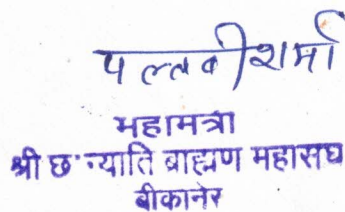 पल्लवी शर्मा
महामत्रा
श्री छ' न्याति ब्राह्मण महासघ
बीकानेर